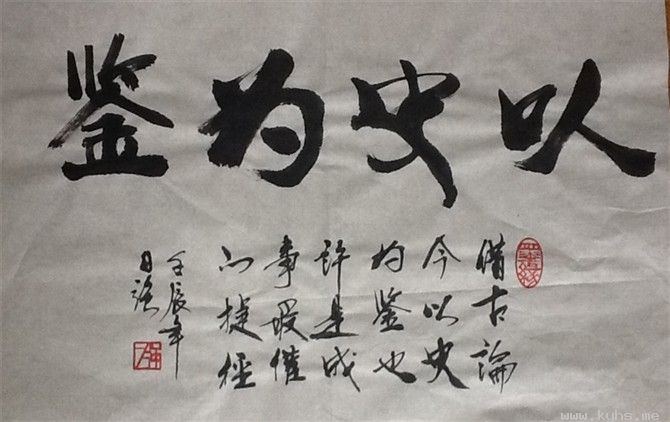 以史为鉴
借古論
今以史
为鉴也
許是成
事最催
心捷径
壬辰年
日强
www.kuhs.me